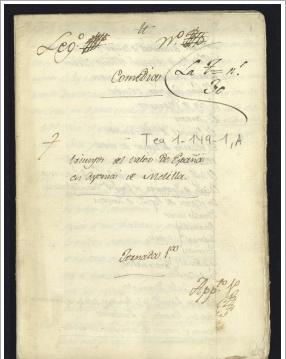 Leg.º
N.º
Comedia
La T= n.º
30
Tea 1-149-1, A
triunfo del valor de España
en defensa de Melilla.
Jornada 1.ª